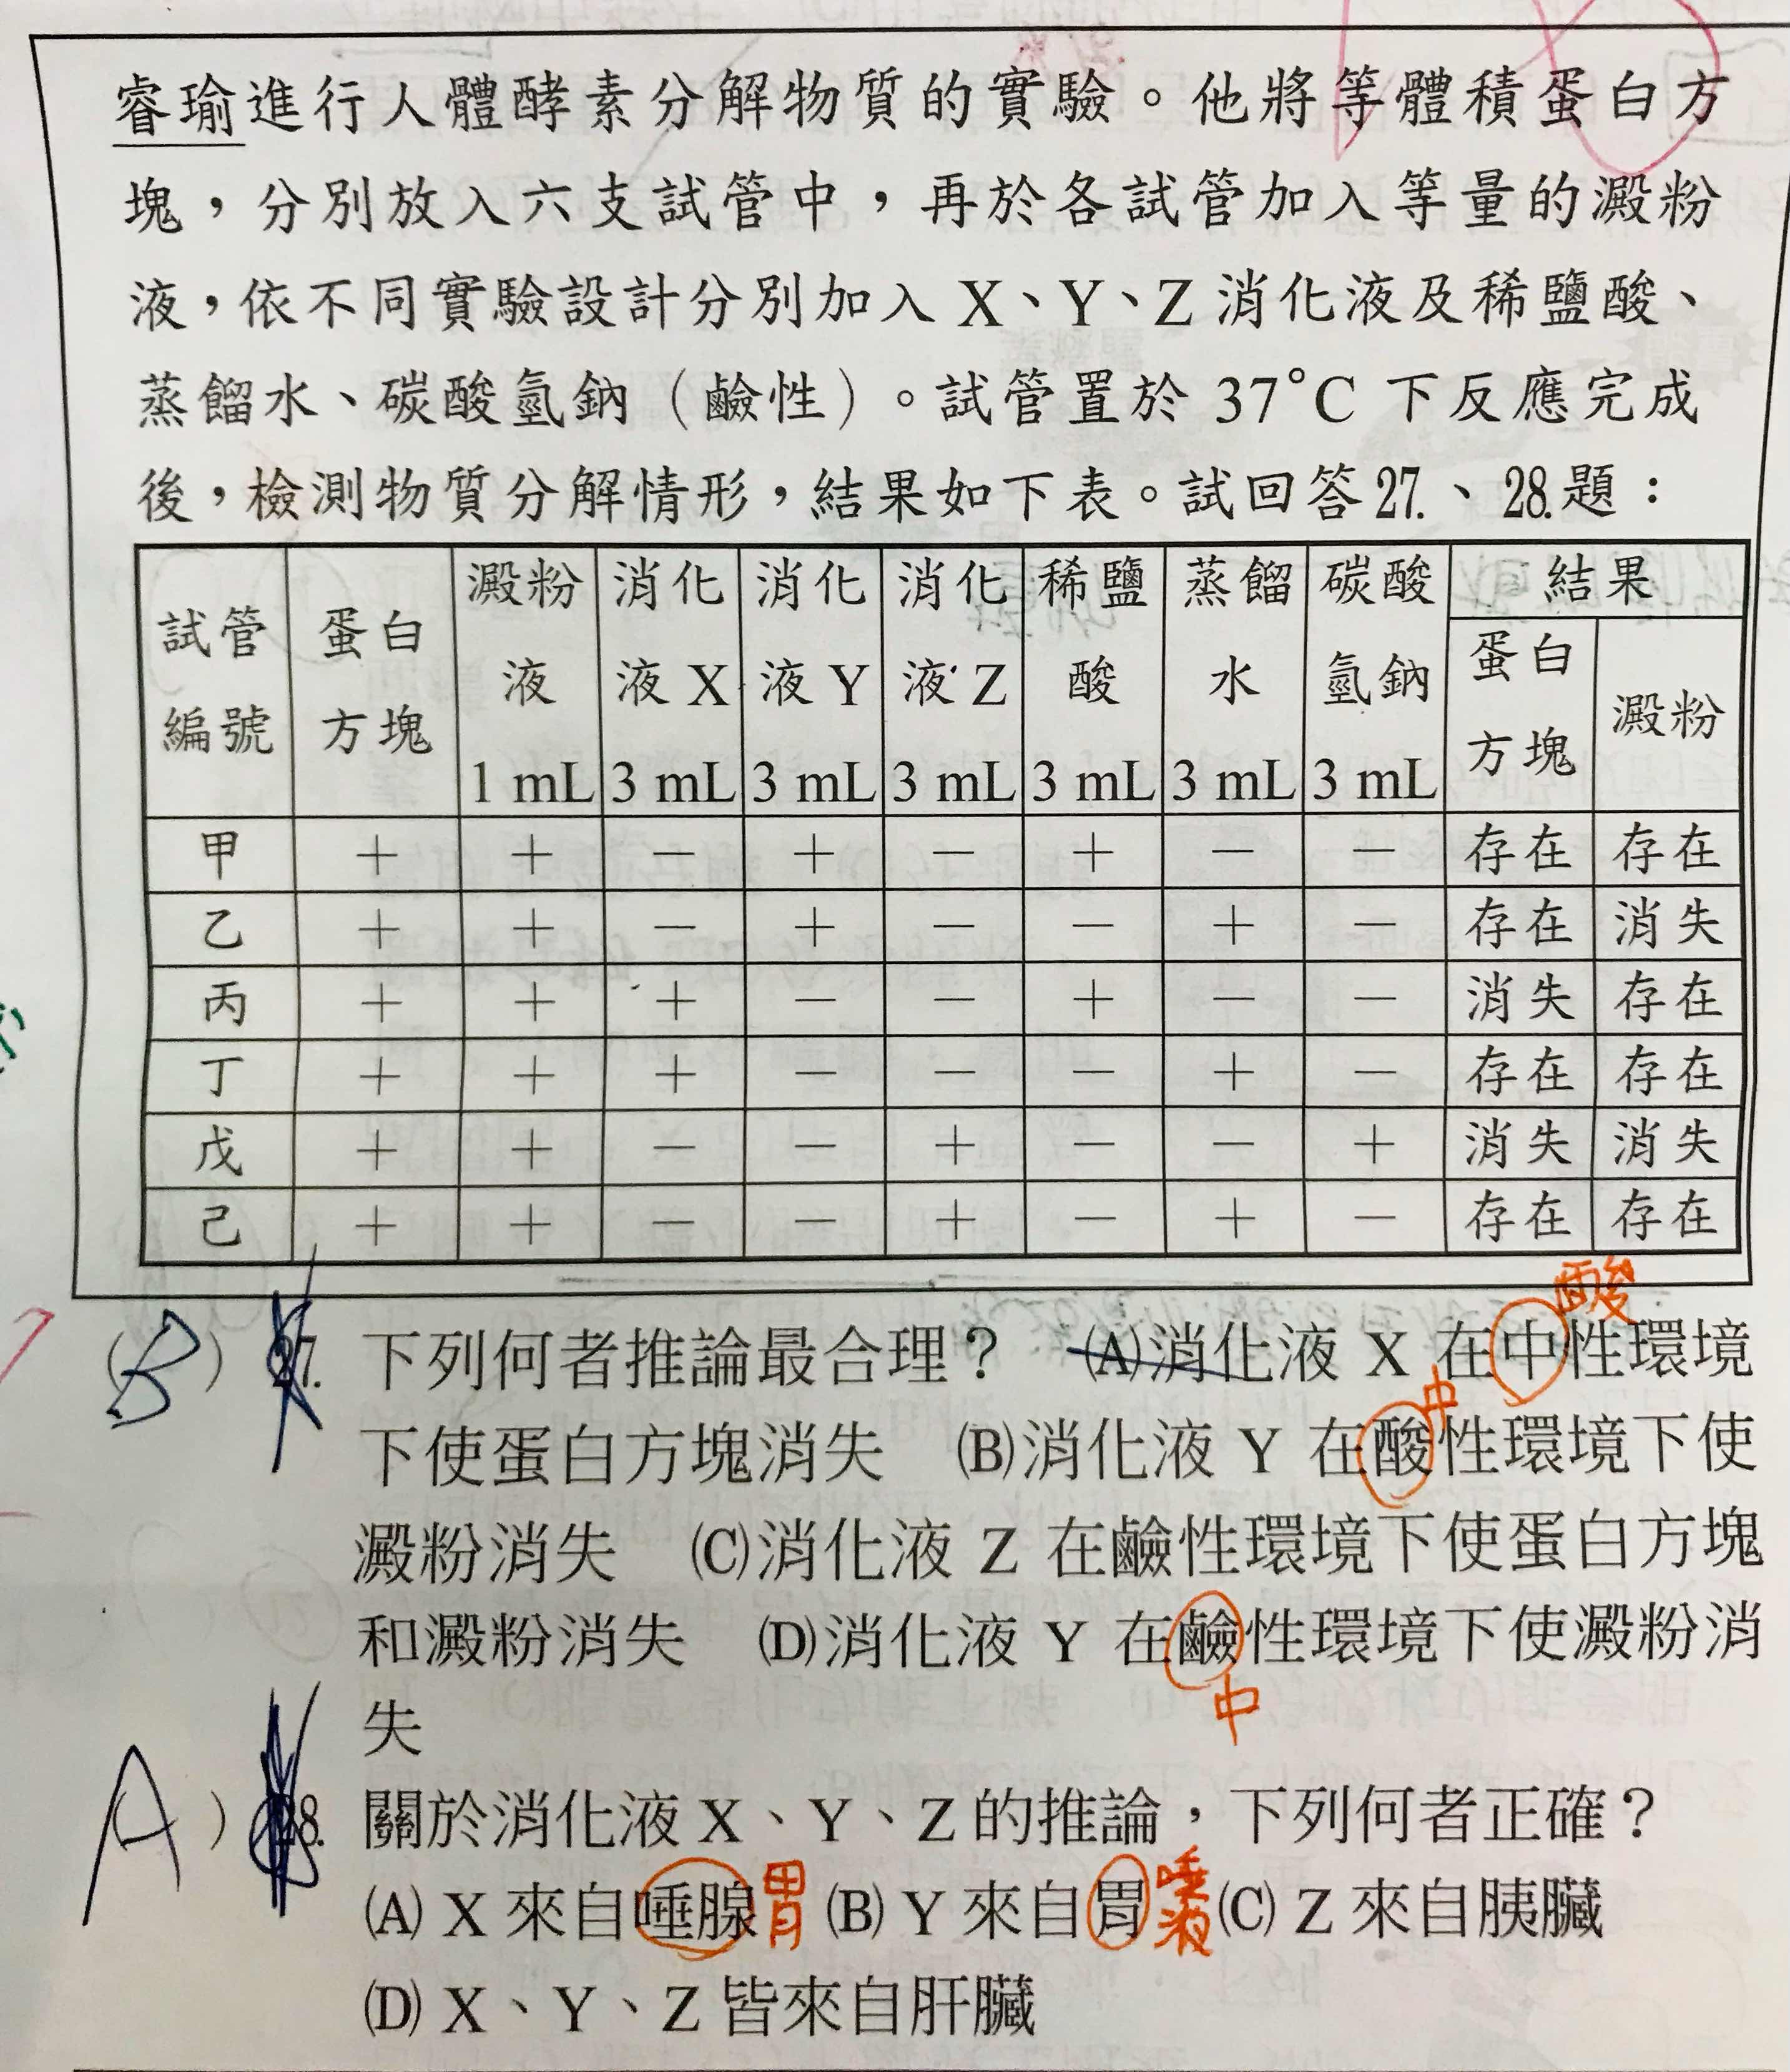 睿瑜進行人體酵素分解物質的實驗。他將等體積蛋白方
塊，分別放入六支試管中，再於各試管加入等量的澱粉
液，依不同實驗設計分別加入 X、Y、Z 消化液及稀鹽酸、
蒸餾水、碳酸氫鈉（鹼性）。試管置於 37°C 下反應完成
後，檢測物質分解情形，結果如下表。試回答27.、28.題：
試管編號 蛋白方塊 澱粉液 1 mL 消化液 X 3 mL 消化液 Y 3 mL 消化液 Z 3 mL 稀鹽酸 3 mL 蒸餾水 3 mL 碳酸氫鈉 3 mL 結果 蛋白方塊 澱粉
甲 ＋ ＋ － ＋ － ＋ － － 存在 存在
乙 ＋ ＋ － ＋ － － ＋ － 存在 消失
丙 ＋ ＋ ＋ － － ＋ － － 消失 存在
丁 ＋ ＋ ＋ － － － ＋ － 存在 存在
戊 ＋ ＋ － － ＋ － － ＋ 消失 消失
己 ＋ ＋ － － ＋ － ＋ － 存在 存在
酸
(B) 27. 下列何者推論最合理？ (A)消化液 X 在中性環境
中
下使蛋白方塊消失 (B)消化液 Y 在酸性環境下使
澱粉消失 (C)消化液 Z 在鹼性環境下使蛋白方塊
和澱粉消失 (D)消化液 Y 在鹼性環境下使澱粉消
中
失
(A) 28. 關於消化液 X、Y、Z 的推論，下列何者正確？
(A) X 來自唾腺 胃 (B) Y 來自胃 唾液 (C) Z 來自胰臟
(D) X、Y、Z 皆來自肝臟